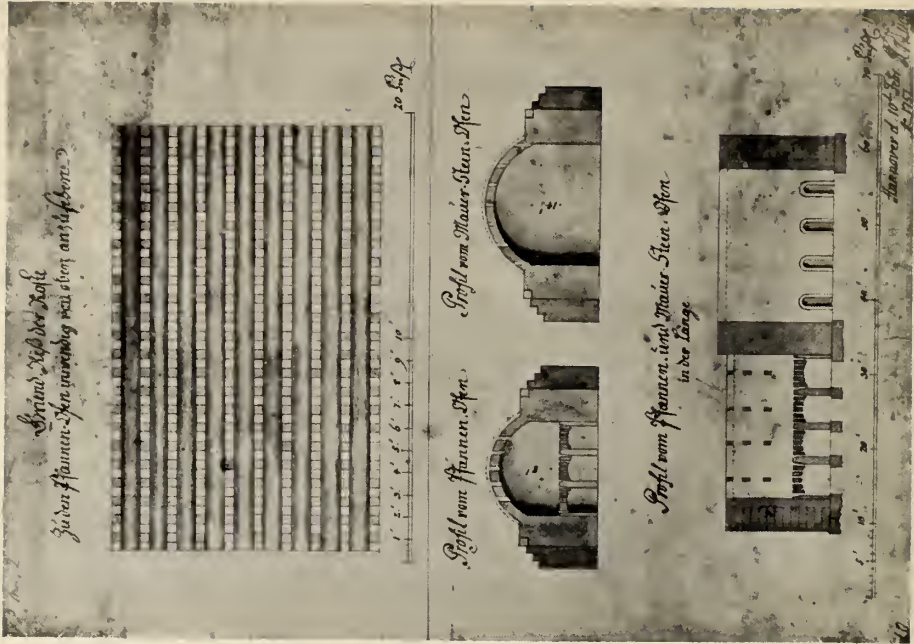 Grund-Riß der Roste
Zu den Pfannen-Ofen inwendig von oben anzusehen
1' 2' 3' 4' 5' 6' 7' 8' 9' 10' 20 Fuß
Profil vom Pfannen-Ofen
Profil vom Mauer-Stein-Ofen
Profil vom Pfannen- und Mauer-Stein-Ofen
in der Länge
5' 10' 20' 30' 40' 50' 60 70 Fuß
Hannover d. 10t